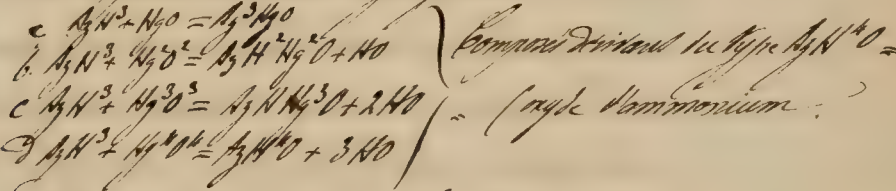 a AzH³ + HgO = Az³HgO
b. AzH³ + Hg²O² = AzH²Hg²O + HO
c AzH³ + Hg³O³ = AzHHg³O + 2HO
d AzH³ + Hg⁴O⁴ = AzH⁴O + 3HO
Composés dérivant du type AzH⁴O =
= (oxyde d'ammonium